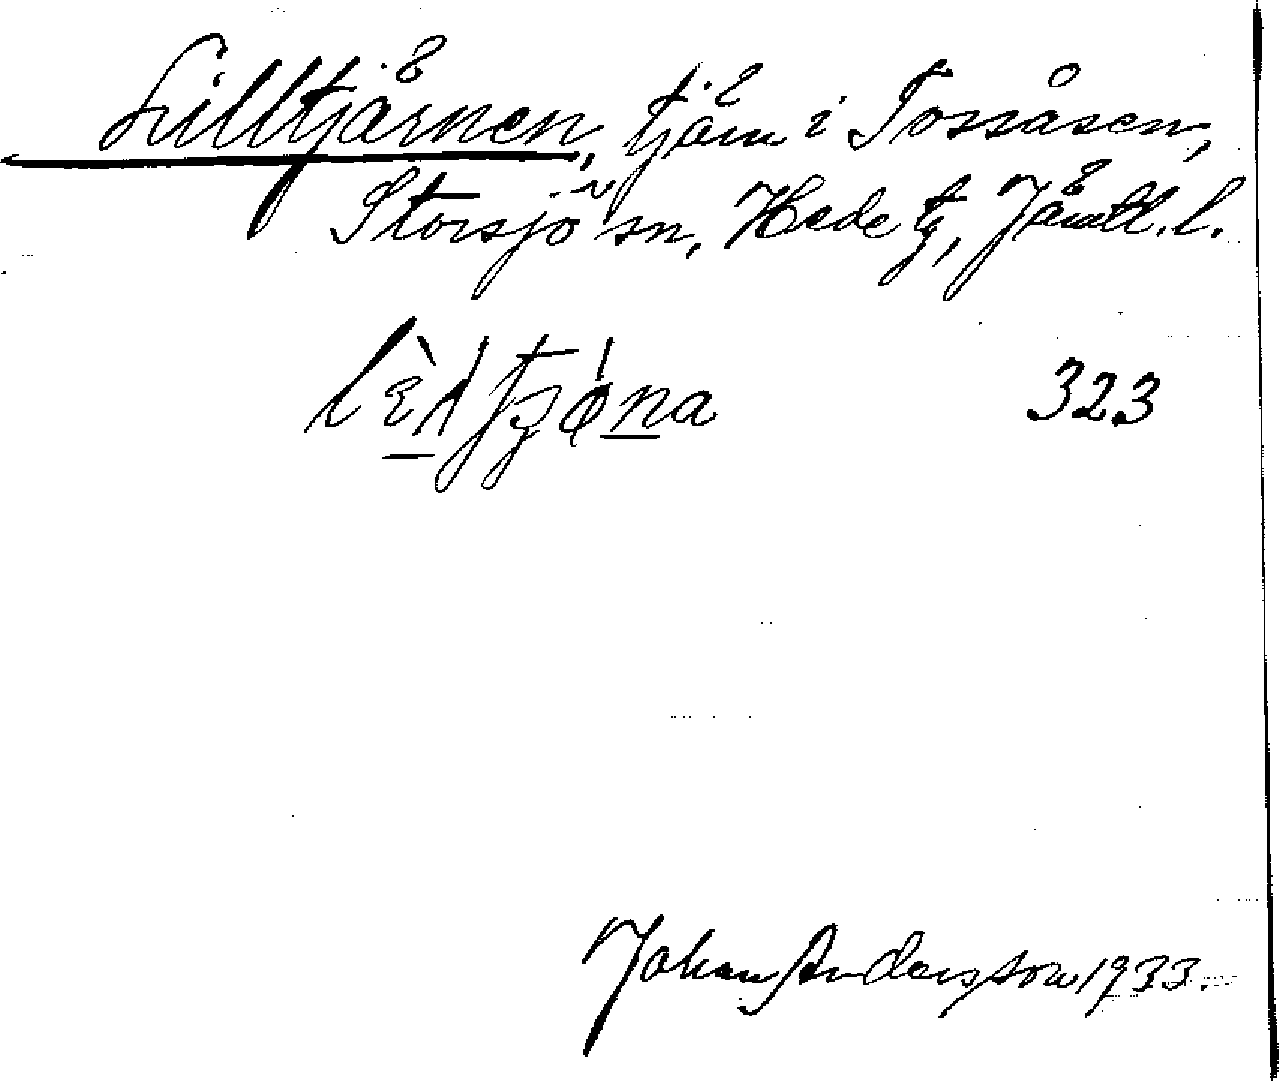 Lilltjärnen, tjärn i Tossåsen,
Storsjö sn, Hede tg, Jämtl. l.
323
Johan Andersson 1933.